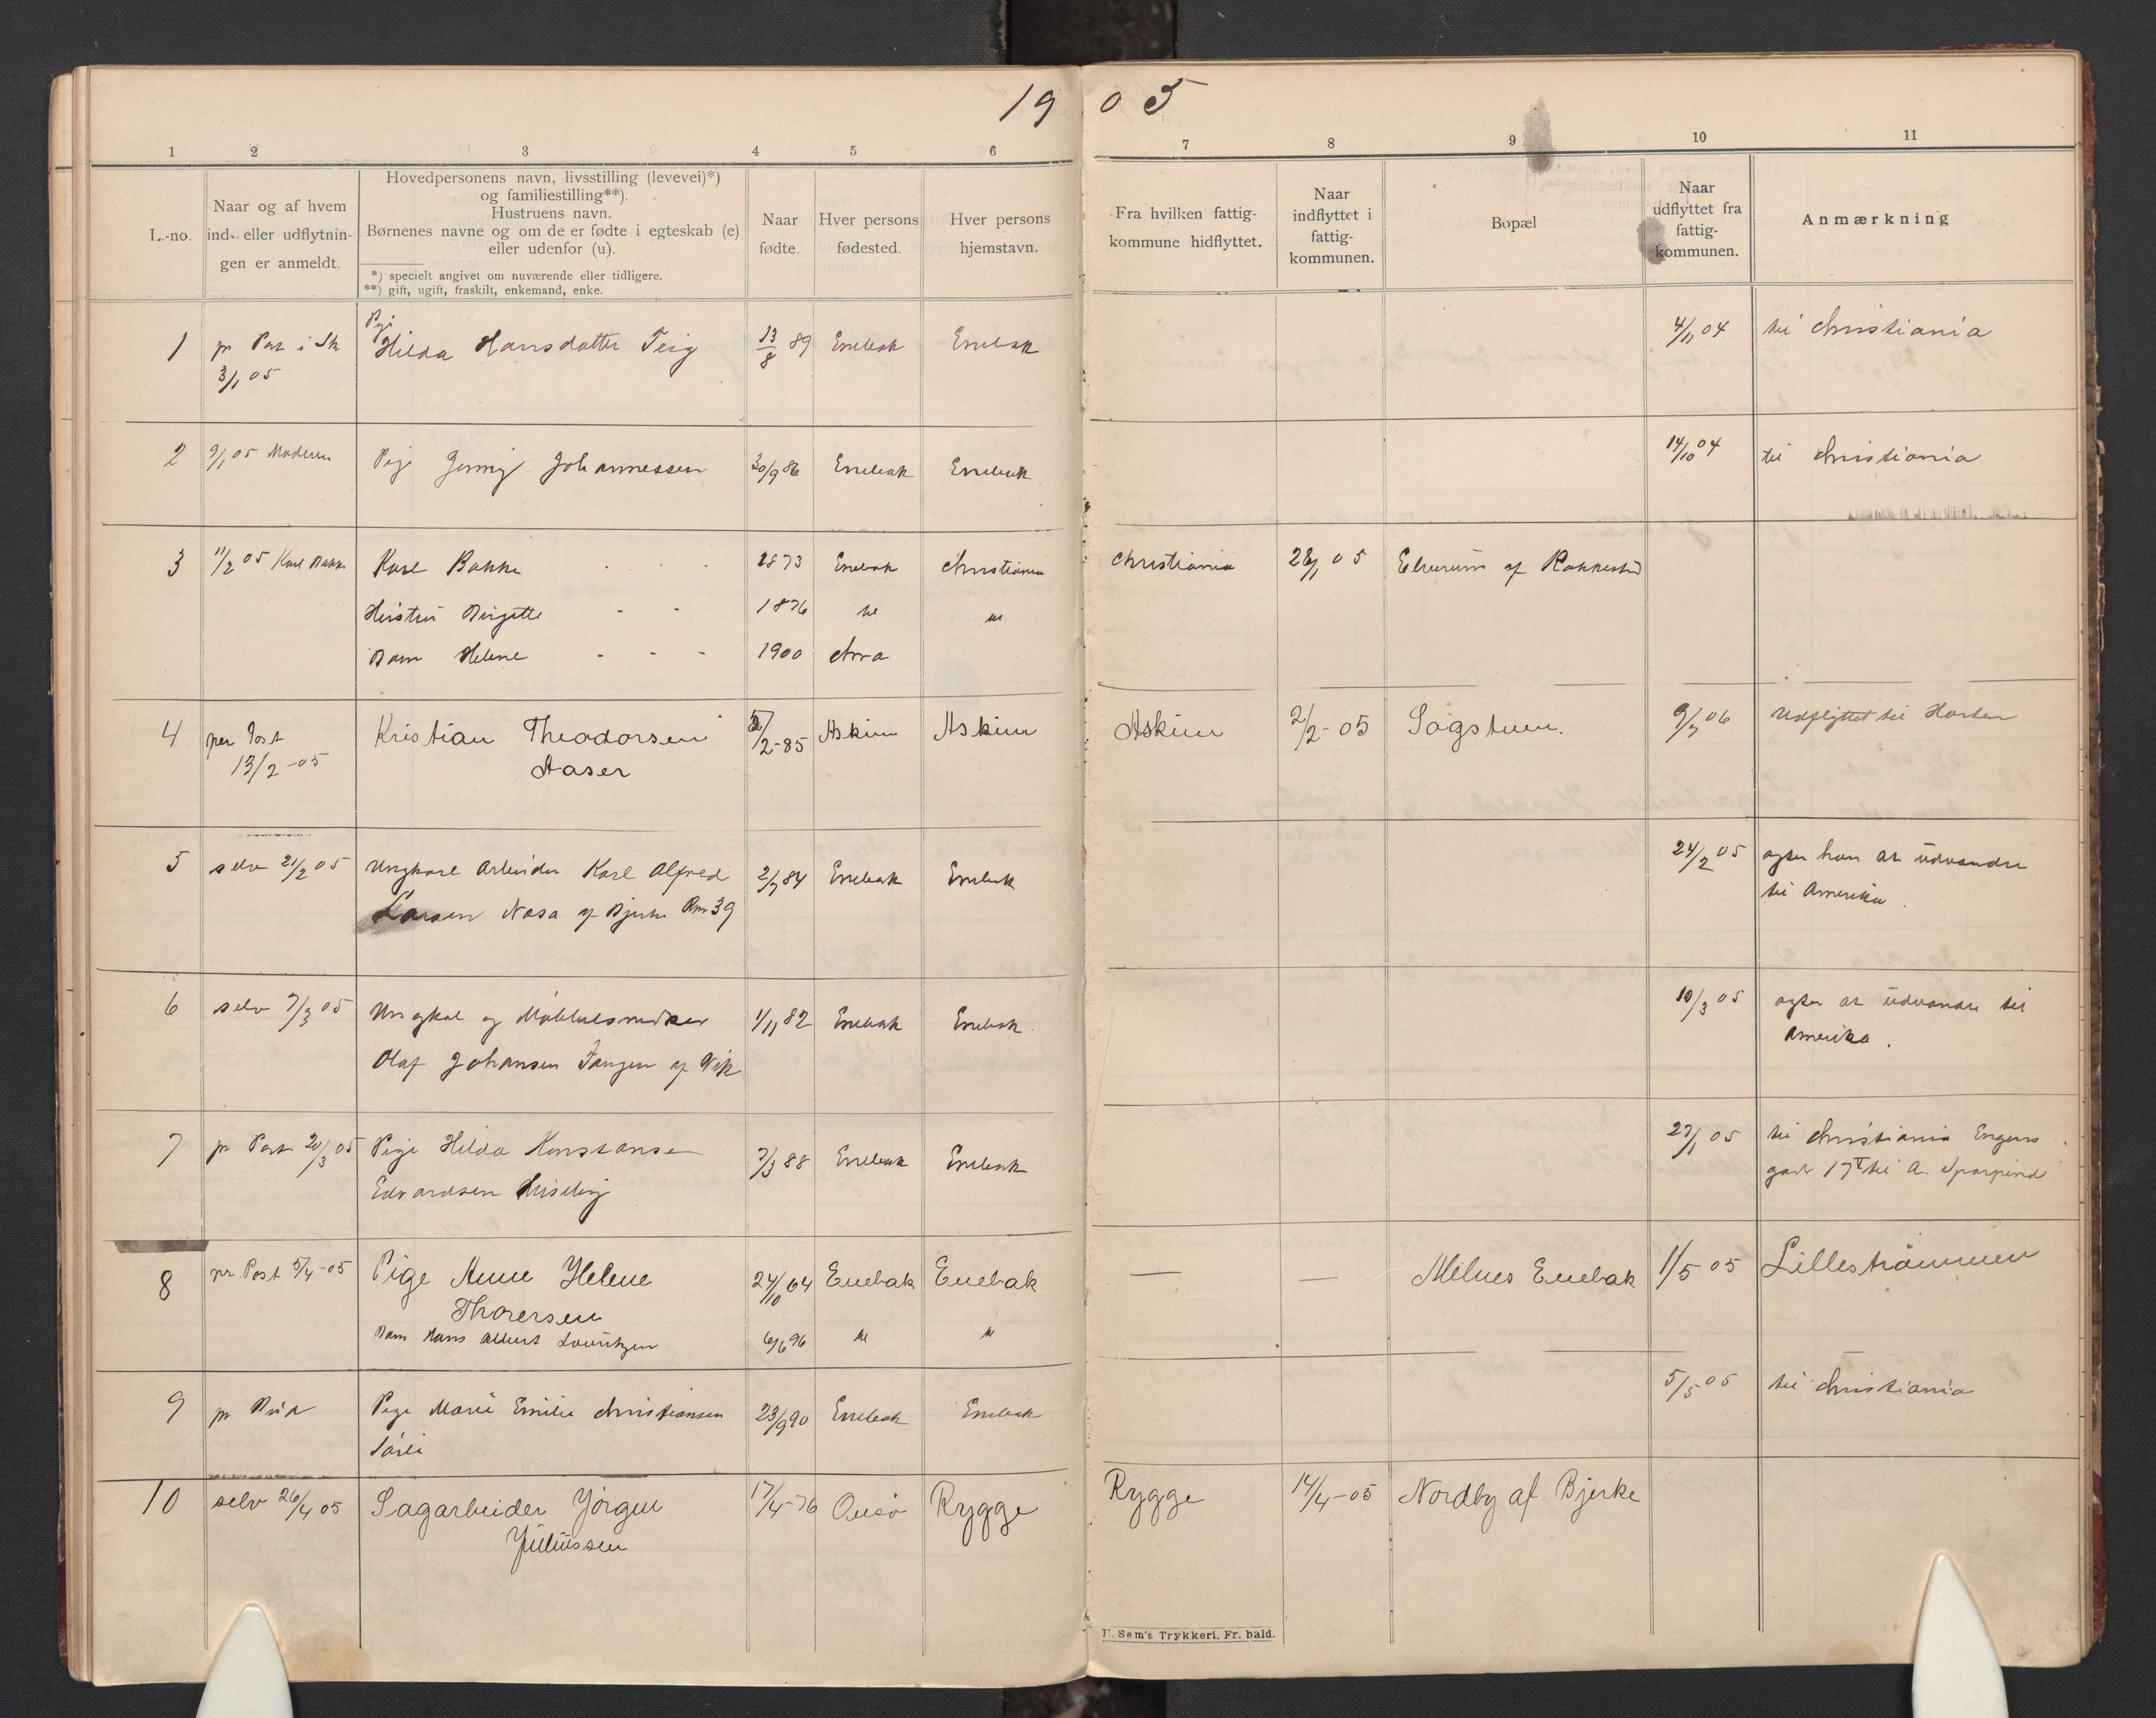 19 05
1 2 3 4 5 6 7 8 9 10 11
L.-no.
Naar og af hvem
ind- eller udflytnin-
gen er anmeldt.
Hovedpersonens navn, livsstilling (levevei)*)
og familiestilling**).
Hustruens navn.
Børnenes navne og om de er fødte i egteskab (e)
eller udenfor (u).
*) specielt angivet om nuværende eller tidligere.
**) gift, ugift, fraskilt, enkemand, enke.
Naar
fødte.
Hver persons
fødested.
Hver persons
hjemstavn.
Fra hvilken fattig-
kommune hidflyttet.
Naar
indflyttet i
fattig-
kommunen.
Bopæl
Naar
udflyttet fra
fattig-
kommunen.
Anmærkning
1 pr Post i Sk Pige Hilda Hansdatter Teig 13/8 89 Enebak Enebak 4/11 04 til Christiania
3/1 05
2 9/1 05 Moderen Pige Jenny Johannessen 30/9 86 Enebak Enebak 14/10 04 til Christiania
3 11/2 05 Karl Bakke Karl Bakke 1873 Enebak Christiania Christiania 28/1 05 Elverum af Rakkestad
Hustru Birgitte 1876
Barn Helene 1900 Chra
4 per Post Kristian Theodorsen 5/2-85 Askim Askim Askim 2/2-05 Sagstuen. 9/3 06 Udflyttet til Horten
13/2-05 Aaser
5 selv 21/2 05 Ungkarl Arbeider Karl Alfred 2/7 84 Enebak Enebak 24/2 05 agter han at udvandre
Larsen Nasa af Bjerke 39 til Amerika.
6 selv 7/3 05 Ungkal og Møbbelsnedker 1/11 82 Enebak Enebak 10/3 05 agter at udvandre til
Olaf Johansen Tangen af Vik Amerika.
7 pr Post 20/3 05 Pige Hilda Konstanse 7/3 88 Enebak Enebak 27/1 05 til Christiania Engens
Edvardsen gade 17 til A.
8 pr Post 5/4-05 Pige Anne Helene 24/10 64 Enebak Enebak — — Melnes Enebak 1/5 05 Lillestrømmen
Thorersen
Barn Hans Albert Lauritzen 6/6 96
9 pr Bud Pige Marie Emilie Christiansen 23/9 90 Enebak Enebak 5/5 05 til Christiania
Tørli
10 selv 26/4 05 Sagarbeider Jørgen 17/4-76 Onsø Rygge Rygge 14/4-05 Nordby af Bjerke
Juliussen
Sem's Trykkeri, Fr. hald.